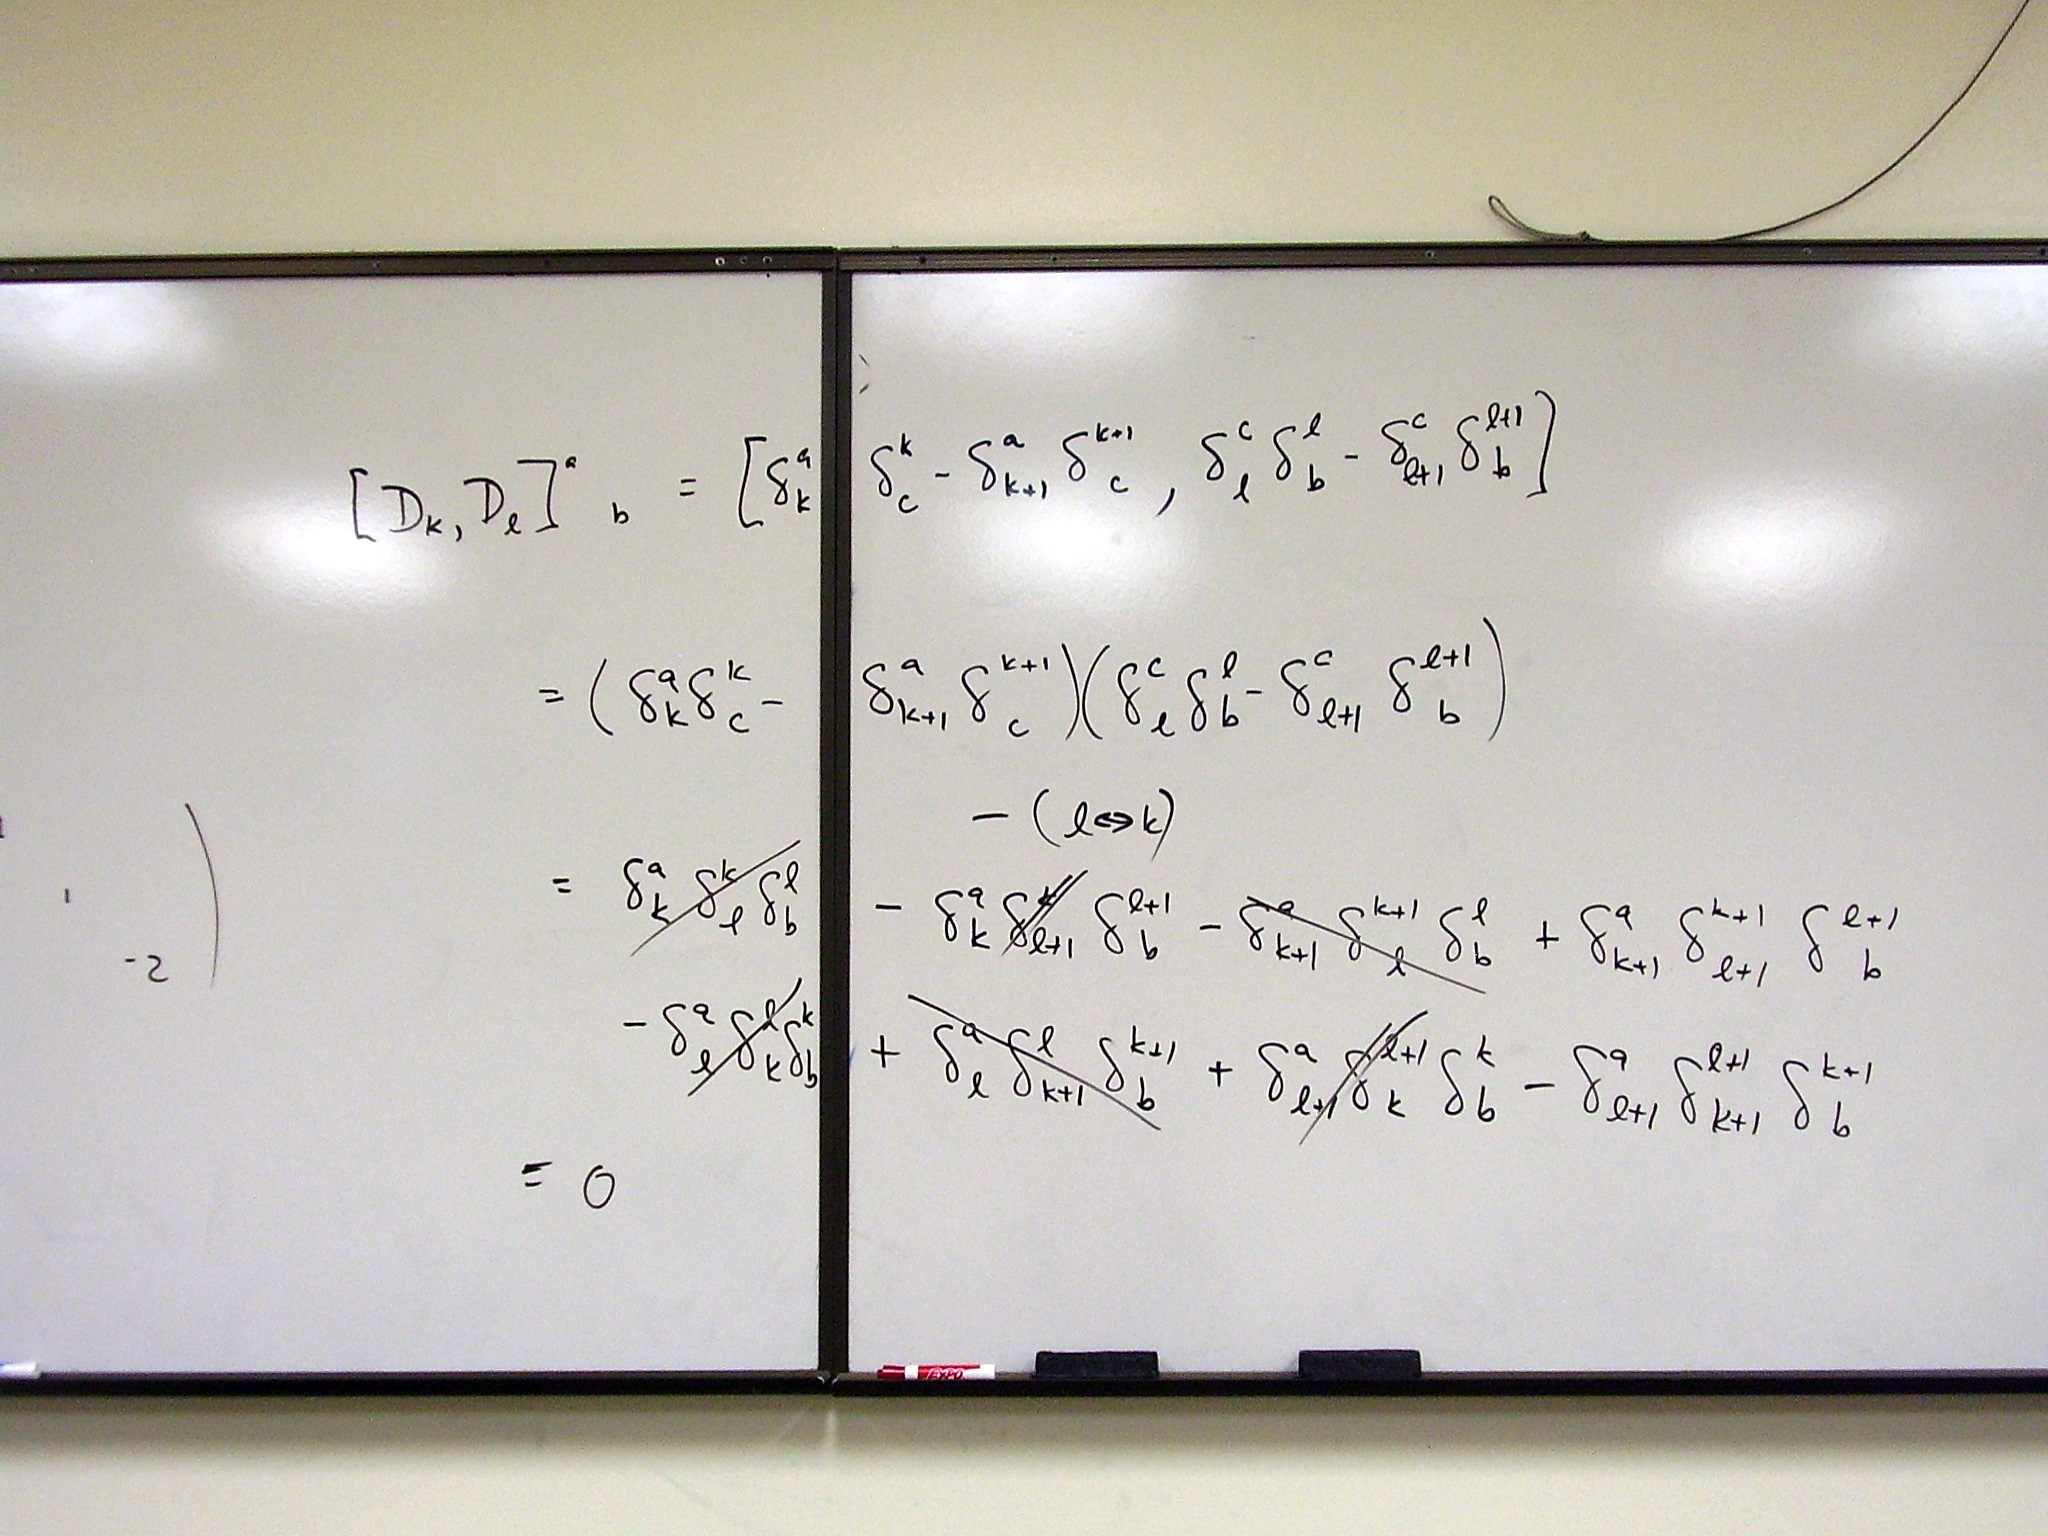 [D_k, D_l]^a_b = [δ^a_k δ^k_c - δ^a_{k+1} δ^{k+1}_c , δ^c_l δ^l_b - δ^c_{l+1} δ^{l+1}_b]
= (δ^a_k δ^k_c - δ^a_{k+1} δ^{k+1}_c)(δ^c_l δ^l_b - δ^c_{l+1} δ^{l+1}_b)
- (l↔k)
= δ^a_k δ^k_l δ^l_b - δ^a_k δ^k_{l+1} δ^{l+1}_b - δ^a_{k+1} δ^{k+1}_l δ^l_b + δ^a_{k+1} δ^{k+1}_{l+1} δ^{l+1}_b
- δ^a_l δ^l_k δ^k_b + δ^a_l δ^l_{k+1} δ^{k+1}_b + δ^a_{l+1} δ^{l+1}_k δ^k_b - δ^a_{l+1} δ^{l+1}_{k+1} δ^{k+1}_b
= 0
1
-2 )
EXPO